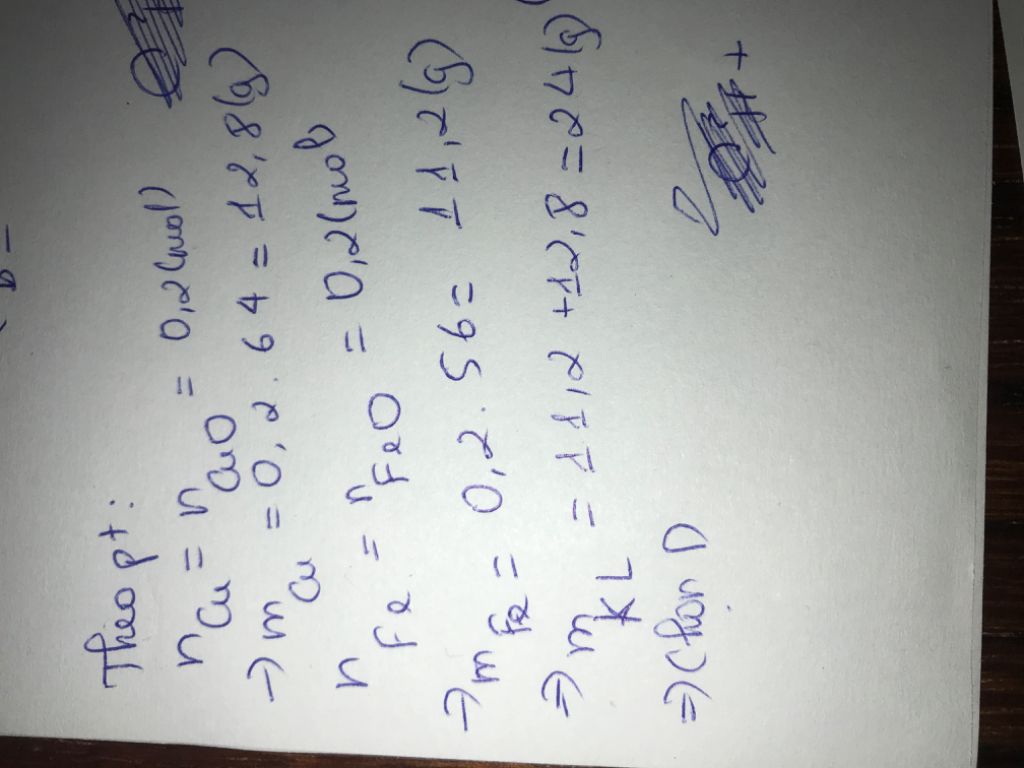 Theo pt:
n Cu = n CuO = 0,2(mol)
→ m Cu = 0,2.64 = 12,8(g)
n Fe = n FeO = 0,2(mol)
→ m Fe = 0,2.56 = 11,2(g)
⇒ m KL = 11,2 + 12,8 = 24(g)
⇒ Chọn D